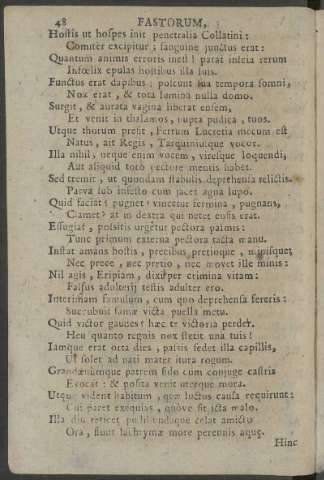 48 FASTORUM,
Hostis ut hospes init penetralia Collatini:
Comiter excipitur; sanguine junctus erat:
Quantum animis erroris inest! parat inscia rerum
Infœlix epulas hostibus illa suis.
Functus erat dapibus; poscunt sua tempora somni,
Nox erat, & tota lumina nulla domo.
Surgit, & aurata vagina liberat ensem,
Et venit in thalamos, nupta pudica, tuos.
Utque thorum presit, Ferrum Lucretia mecum est
Natus, ait Regis, Tarquiniusque vocor.
Illa nihil, neque enim vocem, viresque loquendi,
Aut aliquid toto pectore mentis habet.
Sed tremit, ut quondam stabulis deprehensa relictis.
Parva sub infesto cum jacet agna lupo.
Quid faciat? pugnet? vincetur femina, pugnans,
Clamet? at in dextra qui netet ensis erat.
Effugiat, positis urgetur pectora palmis:
Tunc primum externa pectora tacta manu.
Instat amans hostis, precibus pretioque, minisque;
Nec prece, nec pretio, nec movet ille minis:
Nil agis, Eripiam, dixit, per crimina vitam:
Falsus adulterij testis adulter ero.
Interimam famulum, cum quo deprehensa fereris:
Succubuit famæ victa puella metu.
Quid victor gaudes? hæc te victoria perdet.
Heu quanto regnis nox stetit una tuis!
Iamque erat orta dies, passis sedet illa capillis,
Ut solet ad nati mater itura rogum.
Grandævumque patrem fido cum conjuge castris
Evocat: & posita venit uterque mora.
Utque vident habitum, quæ luctus causa requirunt:
Cui paret exequias, quove sit icta malo.
Illa diu reticet, pudibundaque celat amictu
Ora, fluunt lachrymæ more perennis aquę.
Hinc